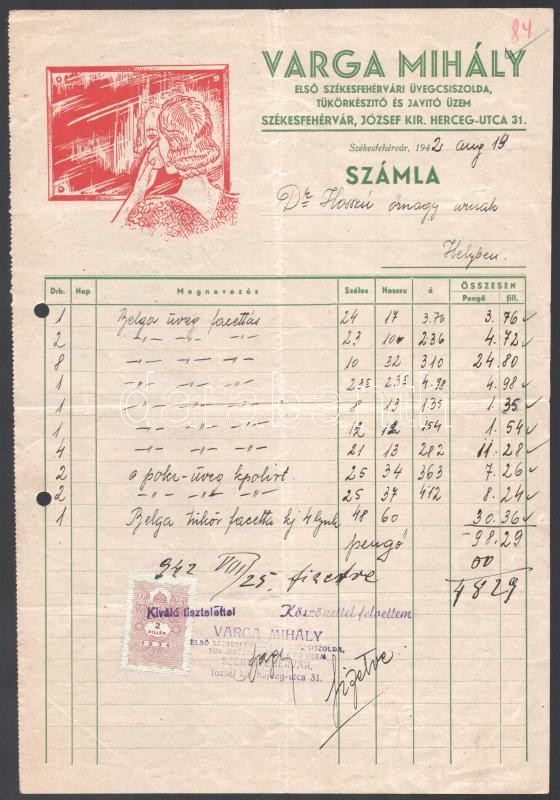 84
VARGA MIHÁLY
ELSŐ SZÉKESFEHÉRVÁRI ÜVEGCSISZOLDA,
TÜKÖRKÉSZITŐ ÉS JAVITÓ ÜZEM
SZÉKESFEHÉRVÁR, JÓZSEF KIR. HERCEG-UTCA 31.
Székesfehérvár, 1942 aug 19
SZÁMLA
Dr Hosszú őrnagy urnak
Helyben.
ÖSSZESEN
Drb. Nap Megnevezés Széles Hosszu á Pengő fill.
1 Belga üveg facettás 24 17 3.76 3.76
2 -"- -"- -"- 23 10 236 4.72
8 -"- -"- -"- 10 32 310 24.80
1 -"- -"- -"- 23.5 23.5 4.98 4.98
1 -"- -"- -"- 8 13 135 1.35
1 -"- -"- -"- 12 12 154 1.54
4 -"- -"- -"- 21 13 282 11.28
2 üveg 25 34 363 7.26
2 -"- -"- -"- 25 37 412 8.24
1 Belga tükör facetta 48 60 30.36
pengő 98.29
00
942 VIII/25. fizetve
4829
Kiváló tisztelettel Köszönettel felvettem
VARGA MIHÁLY
2
FILLÉR
1934
József kir. herceg-utca 31.
fizetve
databanth